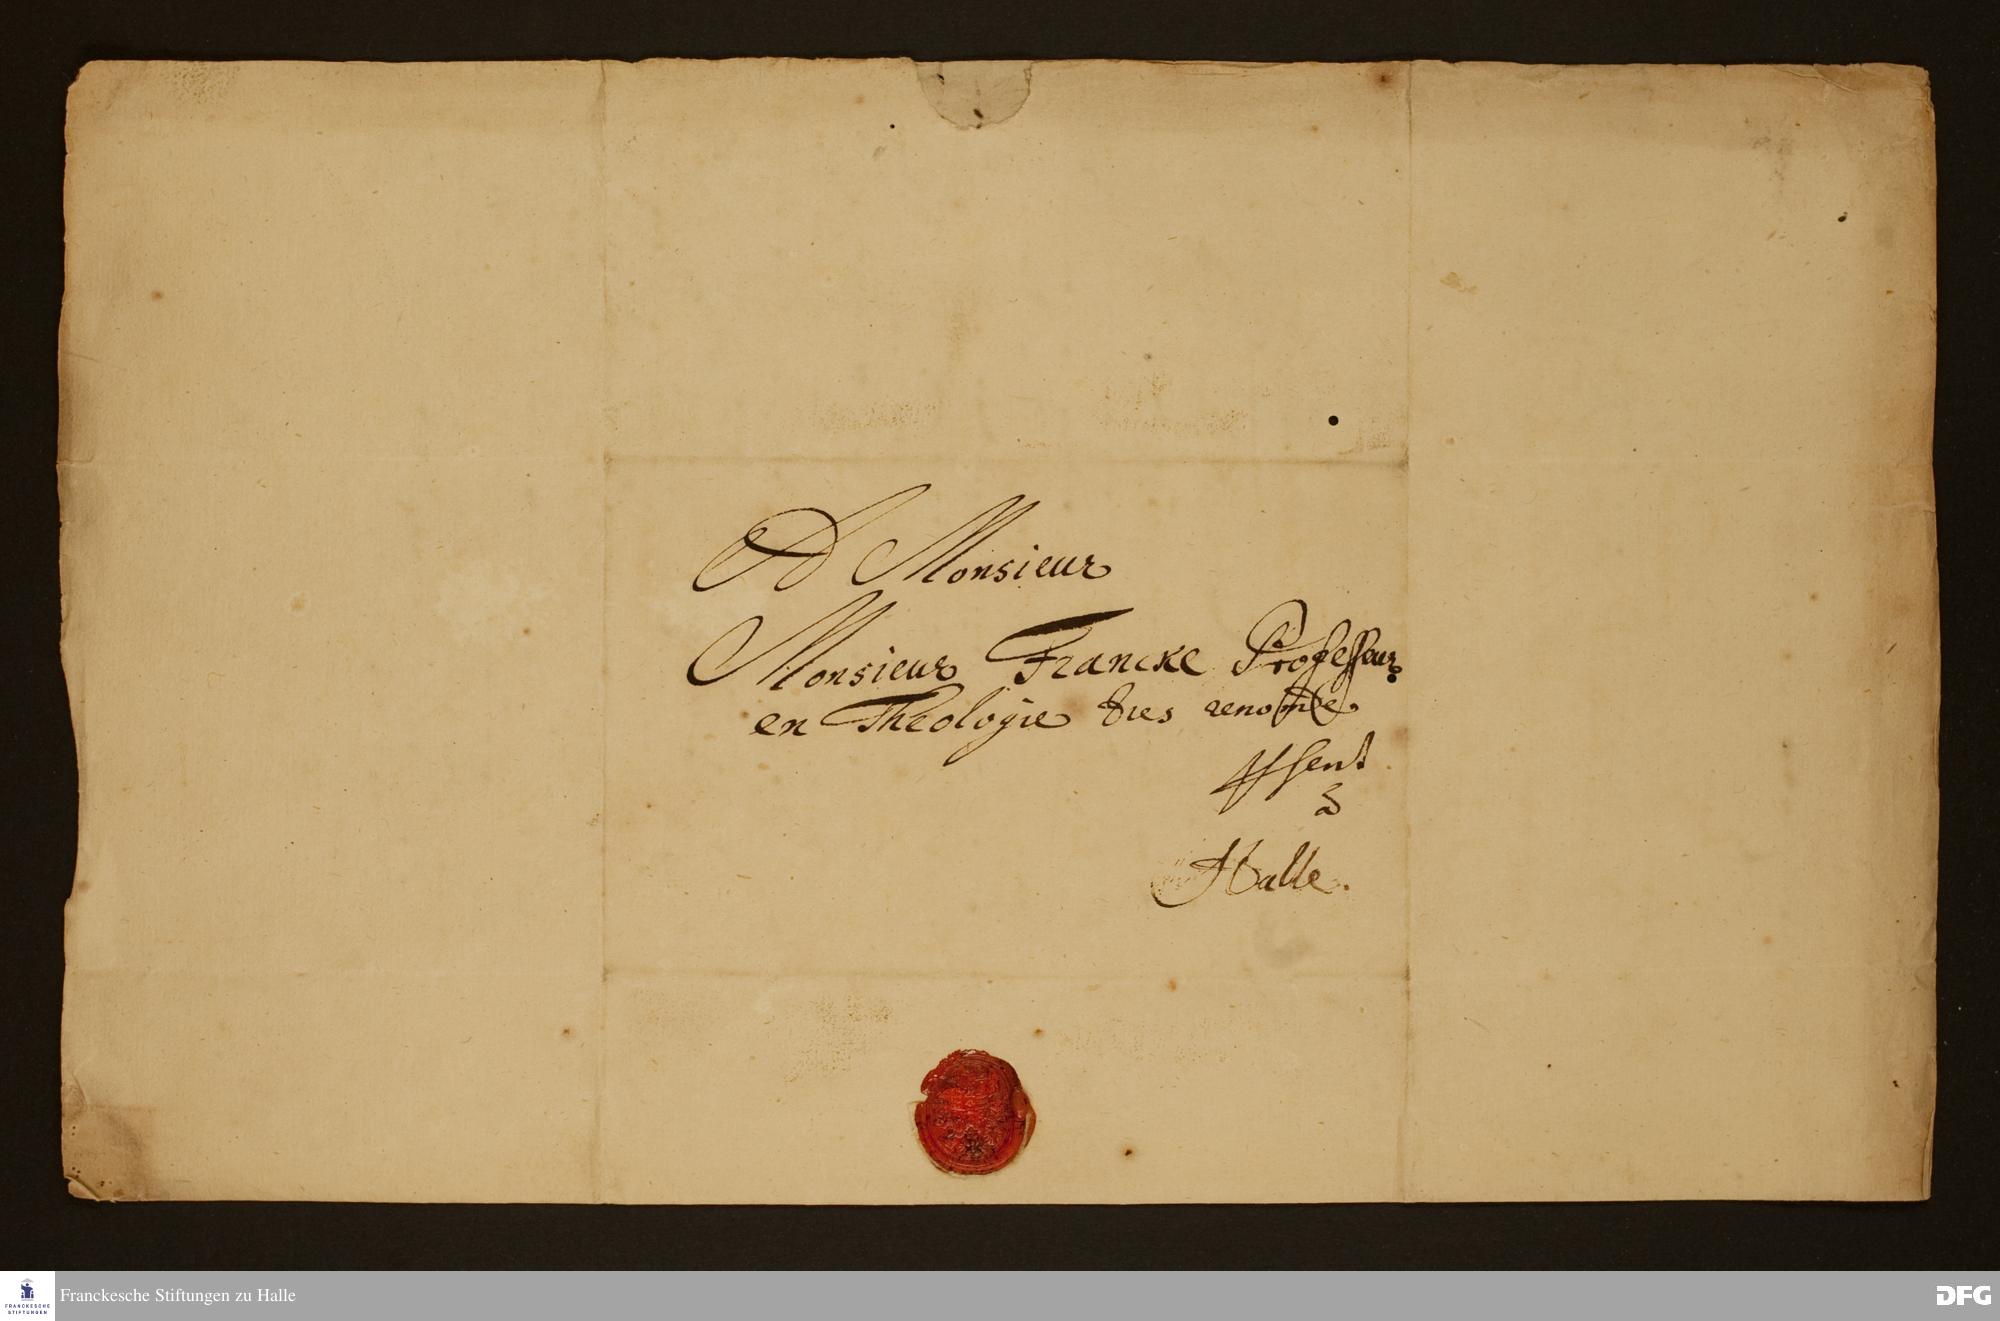 A Monsieur
Monsieur Francke Professeur
en Theologie tres renomé
à
Halle.
Franckesche Stiftungen zu Halle
DFG
FRANCKESCHE
STIFTUNGEN